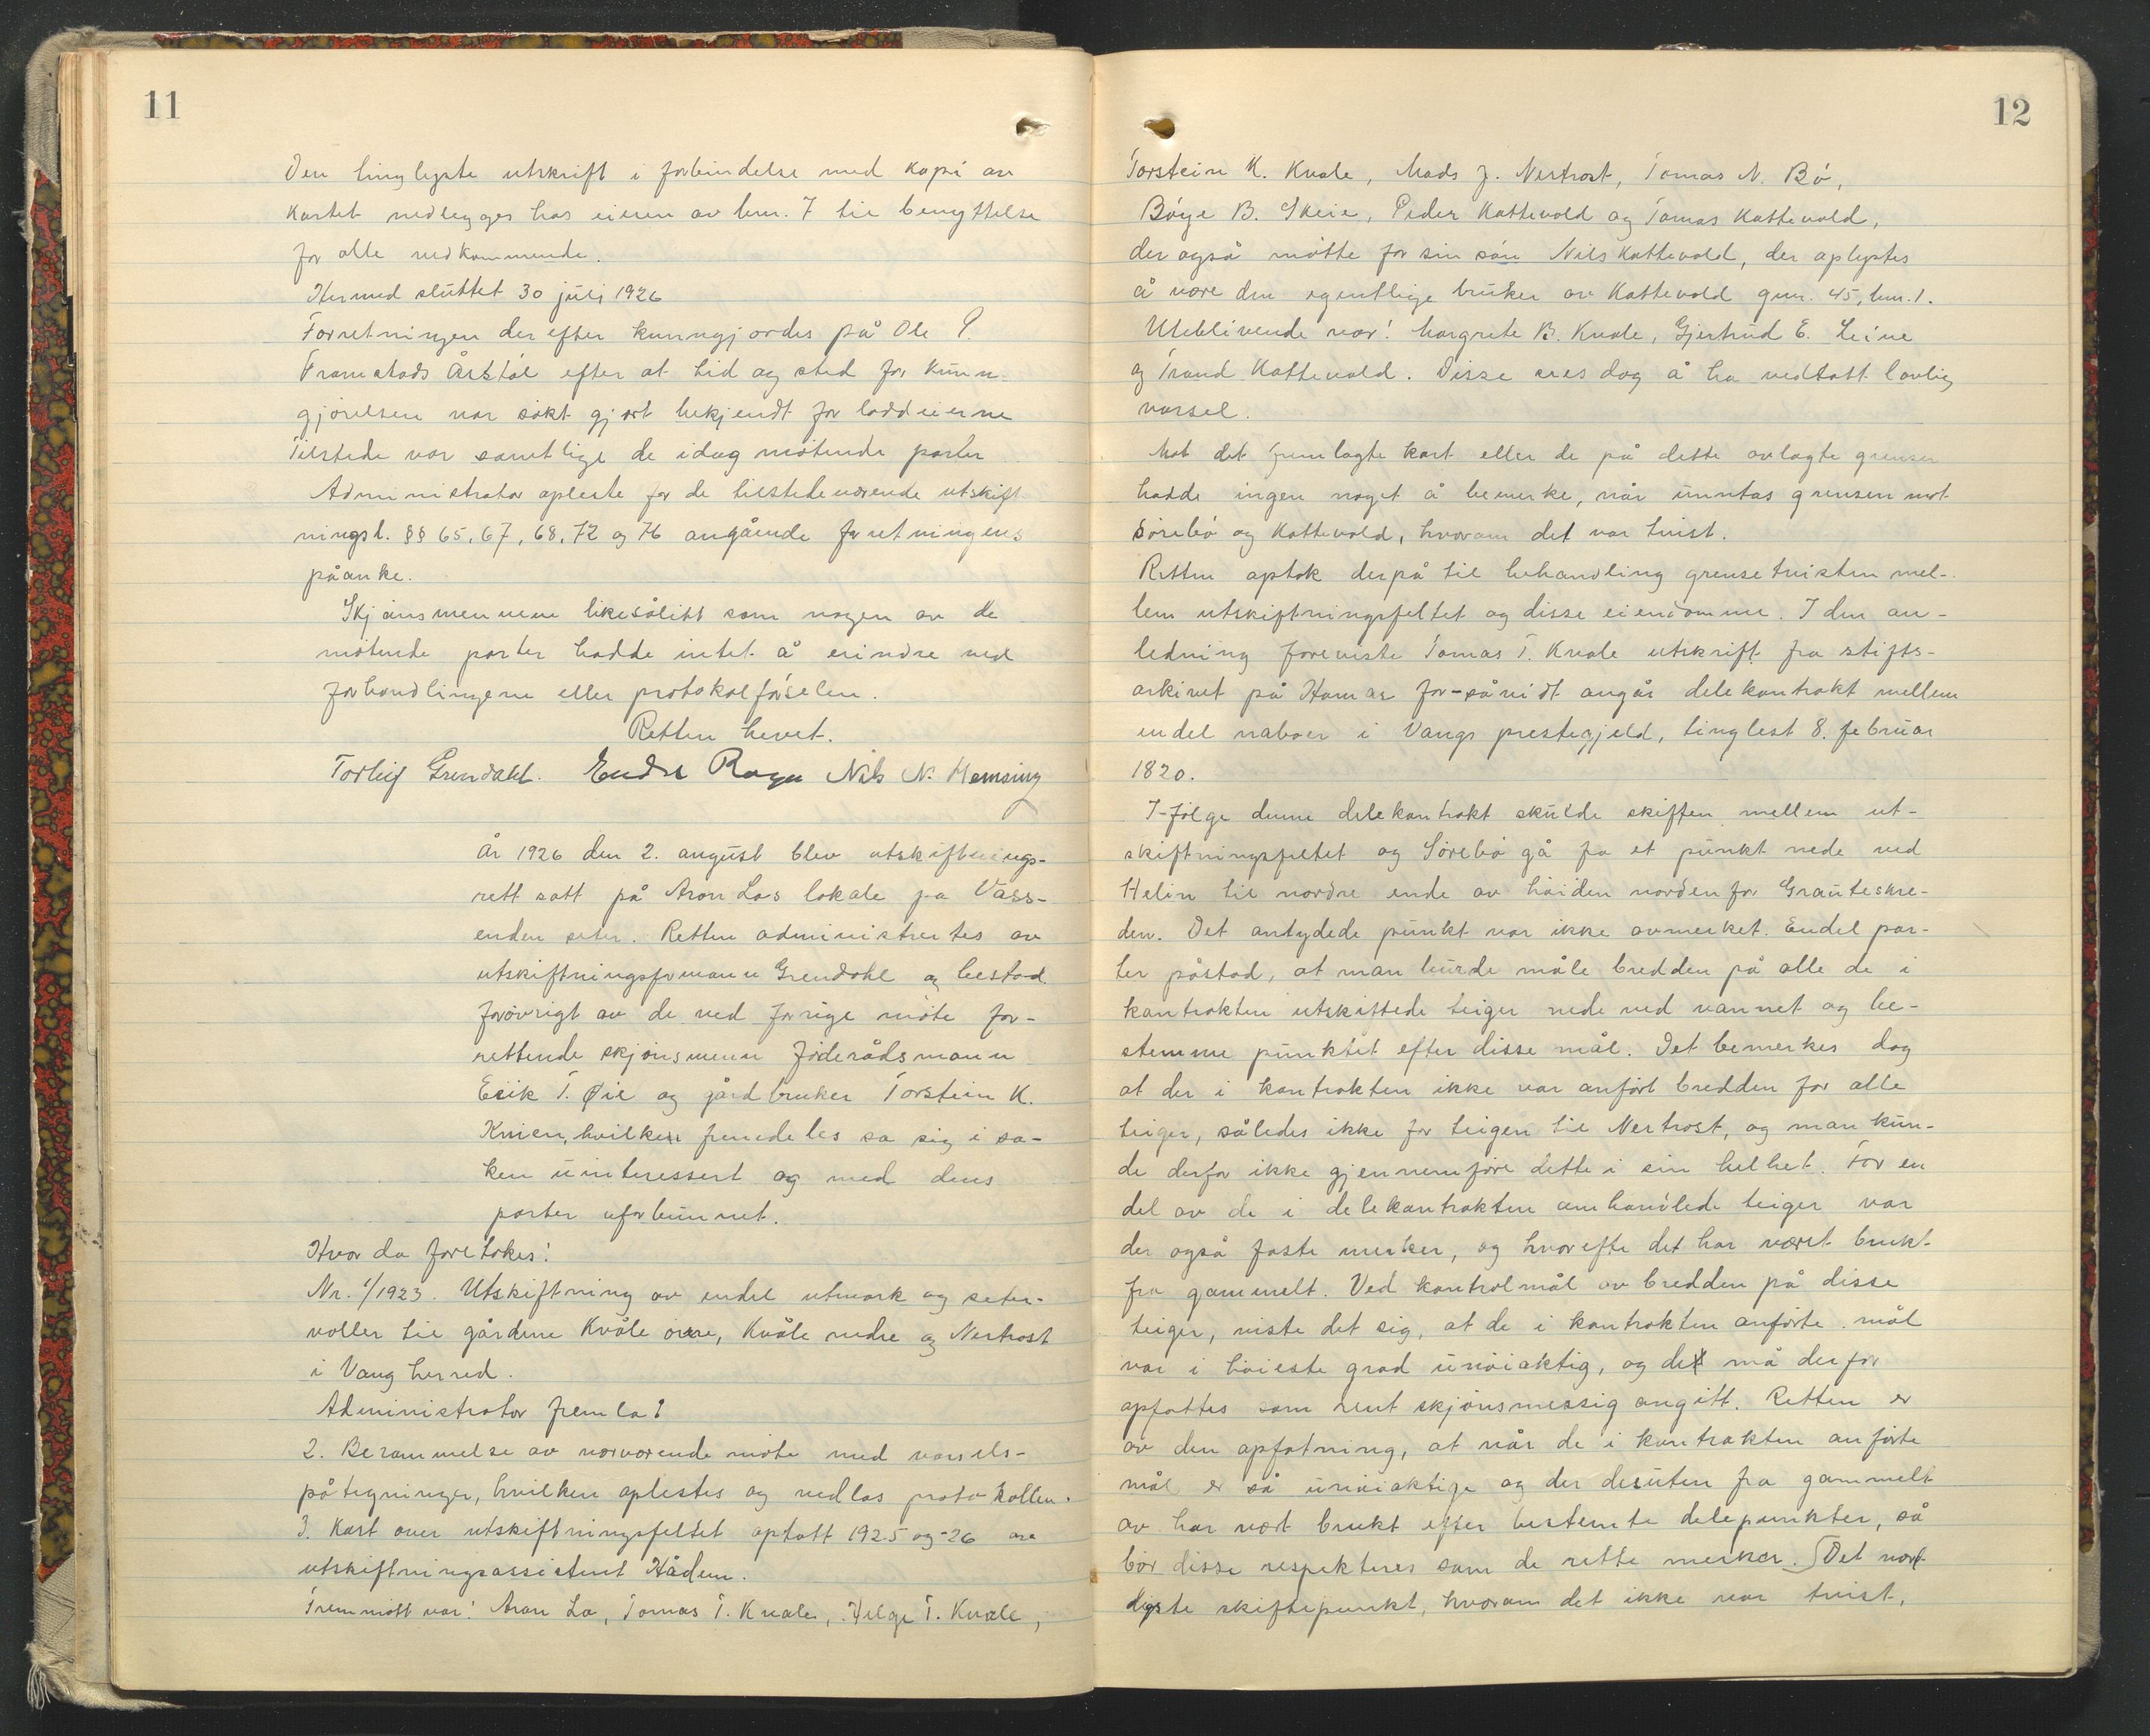 11
Den tinglyste utskrift i forbindelse med kopi av
kartet nedlegges hos eieren av bnr. 7 til benyttelse
for alle vedkommende.
Hermed sluttet 30 juli 1926
Forretningen derefter kunngjordes på Ole P.
Framstads Årstøl efter at tid og sted for kunn-
gjørelsen var søkt gjort bekjendt for loddeierne
Tilstede var samtlige de idag møtende parter
Administrator opleste for de tilstedeværende utskift-
ningsl. §§ 65, 67, 68, 72 og 76 angående forretningens
påanke.
Skjønsmennene likesålitt som nogen av de
møtende parter hadde intet å erindre ved
forhandlingene eller protokolførselen.
Retten hevet.
Torleif Grendahl. Endre Rogn Nils N. Hemsing
År 1926 den 2. august blev utskiftnings-
rett satt på Aron Los lokale pa Vass-
enden seter. Retten administrertes av
utskiftningsformann Grendahl og bestod
forøvrigt av de ved forrige møte for-
rettende skjønsmenn føderådsmann
Eirik T. Øie og gårdbruker Torstein K.
Kvien, hvilken fremdeles sa sig i sa-
ken uinteressert og med dens
parter uforbunnet.
Hvor da foretokes:
Nr. 1/1923. Utskiftning av endel utmark og seter-
voller til gårdene Kvåle øvre, Kvåle nedre og Nertrost
i Vang herred.
Administrator fremla:
2. Berammelse av nærværende møte med varsels-
påtegninger, hvilken oplestes og vedlas protokollen.
3. Kart over utskiftningsfeltet optatt 1925 og -26 av
utskiftningsassistent Hådem.
Fremmøtt var: Aron Lo, Tomas T. Kvale, Helge T. Kvale,
12
Torstein K. Kvale, Mads J. Nertrost, Tomas N. Bø,
Bøye B. Skeie, Peder Kattevold og Tomas Kattevold,
der også møtte for sin søn Nils Kattevold, der oplystes
å være den egentlige bruker av Kattevold gnr. 45, bnr. 1.
Uteblivende var: Margrete B. Kvale, Gjertrud E. Leine
og Trond Kattevold. Disse sees dog å ha vedtatt lovlig
varsel.
Mot det fremlagte kart eller de på dette avlagte grenser
hadde ingen noget å bemerke, når unntas grensen mot
Sørebø og Kattevold, hvorom det var tvist.
Retten optok derpå til behandling grensetvisten mel-
lem utskiftningsfeltet og disse eiendomme. I den an-
ledning foreviste Tomas T. Kvale utskrift fra stifts-
arkivet på Hamar for-såvidt angår delekontrakt mellem
endel naboer i Vangs prestegjeld, tinglest 8. februar
1820.
I-følge denne delekontrakt skulde skiften mellem ut-
skiftningsfeltet og Sørebø gå fra et punkt nede ved
Helin til nordre ende av høiden nordenfor Grauteskre-
den. Det antydede punkt var ikke avmerket. Endel par-
ter påstod, at man burde måle bredden på alle de i
kontrakten utskiftede teiger nede ved vannet og be-
stemme punktet efter disse mål. Det bemerkes dog
at der i kontrakten ikke var anført bredden for alle
teiger, således ikke for teigen til Nertrost, og man kun-
de derfor ikke gjennemføre dette i sin helhet. For en
del av de i delekontrakten omhandlede teiger var
der også faste merker, og hvorefte det har været brukt
fra gammelt. Ved kontrolmål av bredden på disse
teiger, viste det sig, at de i kontrakten anførte mål
var i høieste grad unøiaktig, og det må derfor
opfattes som rent skjønsmessig angitt. Retten er
av den opfatning, at når de i kontrakten anførte
mål er så unøiaktige og der desuten fra gammelt
av har vært brukt efter bestemte delepunkter, så
bør disse respekteres som de rette merker. Det nor-
dligste skiftepunkt, hvorom det ikke var tvist,